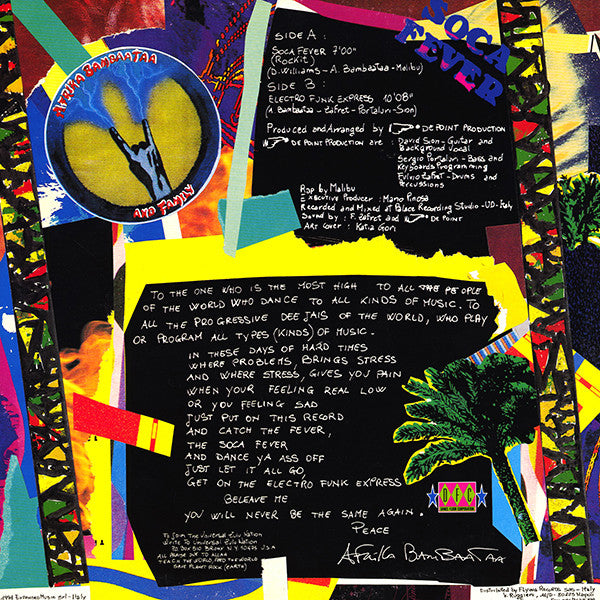 AFRIKA BAMBAATAA
AND FAMILY
SOCA
FEVER
SIDE A:
SOCA FEVER 7'00"
(ROCKIT)
(D. WILLIAMS - A. BAMBAATAA - MALIBU)
SIDE B:
ELECTRO FUNK EXPRESS 10'08"
(A. BAMBAATAA - ZAFRET - PORTALURI - SION)
PRODUCED AND ARRANGED BY DE POINT PRODUCTION
DE POINT PRODUCTION ARE: DAVID SION - GUITAR AND
BACKGROUND VOCAL
SERGIO PORTALURI - BASS AND
KEYBOARDS PROGRAMMING
FULVIO ZAFRET - DRUMS AND
PERCUSSIONS
RAP BY MALIBU
EXECUTIVE PRODUCER: MARIO PINOSA
RECORDED AND MIXED AT PALACE RECORDING STUDIO - UD - ITALY
BY: F. ZAFRET AND DE POINT
ART COVER: KATIA GORI
TO THE ONE WHO IS THE MOST HIGH TO ALL THE PEOPLE
OF THE WORLD WHO DANCE TO ALL KINDS OF MUSIC. TO
ALL THE PROGRESSIVE DEE JAIS OF THE WORLD, WHO PLAY
OR PROGRAM ALL TYPES (KINDS) OF MUSIC.
IN THESE DAYS OF HARD TIMES
WHERE PROBLEMS, BRINGS STRESS
AND WHERE STRESS, GIVES YOU PAIN
WHEN YOUR FEELING REAL LOW
OR YOU FEELING SAD
JUST PUT ON THIS RECORD
AND CATCH THE FEVER,
THE SOCA FEVER
AND DANCE YA ASS OFF
JUST LET IT ALL GO,
GET ON THE ELECTRO FUNK EXPRESS
BELEAVE ME
YOU WILL NEVER BE THE SAME AGAIN.
PEACE
AFRIKA BAMBAATAA
DFC
TO JOIN THE UNIVERSAL ZULU NATION
WRITE TO UNIVERSAL ZULU NATION
PO BOX BRONX N.Y. 10475 U.S.A
ALL PRAISE DUE TO ALLAH
TEACH THE WORLD, FEED THE WORLD
SAVE PLANET ROCK (EARTH)
Srl - Italy
Distributed by Flying Records SRL - Italy